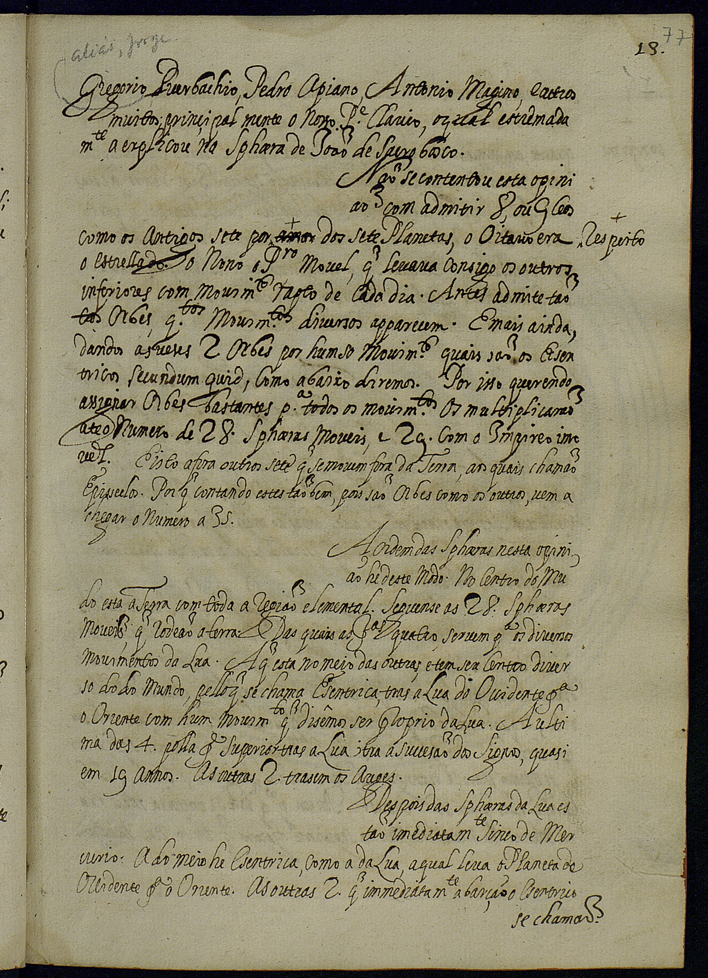 77
13.
aliás, Jorge
Gregorio Puerbachio, Pedro Apiano, Antonio Magino, e outros
muitos; principal mente o Nosso P.e Clavio, o qual estremada
m.te a explicou na Sphæra de Joaõ de Sacrobosco.
Naõ se contentou esta opini
aõ com admitir 8, ou 9 Ceos
como os Antigos sete por dos sete Planetas, o Oitavo era respeito
o estrellado. o Nono o Pr.o Movel, q̃ levava consigo os outros
inferiores com movim.to rapto de cada dia. Antes admite taõ
tos Orbes, q.tos Movim.tos diversos apparecem. E mais ainda,
dando ás veses 2 Orbes por hum só Movim.to quais saõ os Esen
tricos secundum quid, como abaixo diremos. Por isso querendo
assinar Orbes bastantes p.a todos os movim.tos Os multiplicaraõ
ate o Numero de 28. Sphæras Moveis, e 29. com o Empireo imo
vel. Isto afora outros sete q̃ se movem fora da Terra, aos quais chamaõ
Episcclos. Por q̃ contando estes taõbem, pois saõ Orbes como os outros, vem a
chegar o Numero a 35.
A ordem das Sphæras nesta opini,
aõ he deste Modo. No Centro do Mu
do esta a Terra com toda a Regiaõ elemental. Seguense as 28. Sphæras
Moveis, q̃ rodeaõ a terra. Das quais as pr.as quatro servem p.a os diversos
Movimentos da Lua. A q̃ esta no meio das outras, e tem seu Centro diver
so do do Mundo, pello q̃ se chama Esentrica, tras a Lua do Occidente p.a
o Oriente com hum movim.to q̃ disemos ser proprio da Lua. A ulti
ma das 4. posta p.r superior tras a Lua a sucesaõ dos Signos, quasi
em 19 Annos. As outras 2. trasem os Auges.
Despois das Sphæras da Lua es
taõ imediatam.te sinco de Mer
curio. A do meio he Esentrica, como a da Lua, a qual leva o Planeta de
Occidente p.a o Oriente. As outras 2. q̃ immediatam.te abarcaõ o Esentrico
se chamaõ